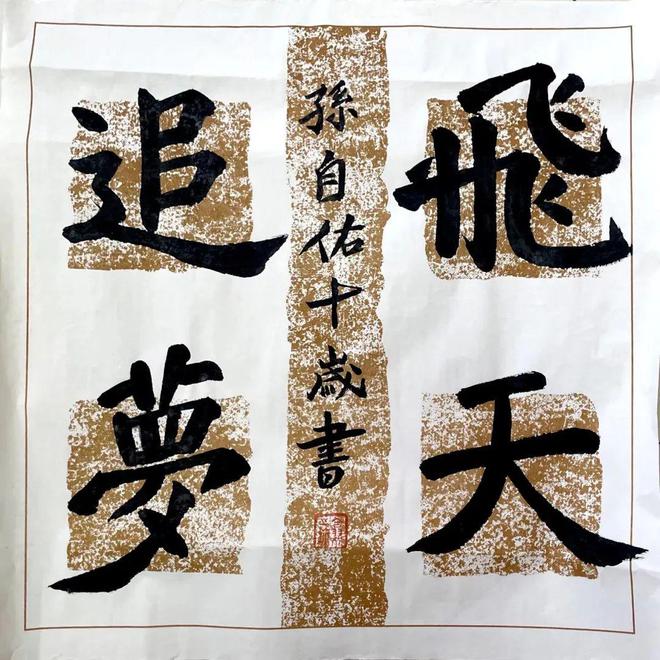 飛天
追夢
孫自佑十歲書